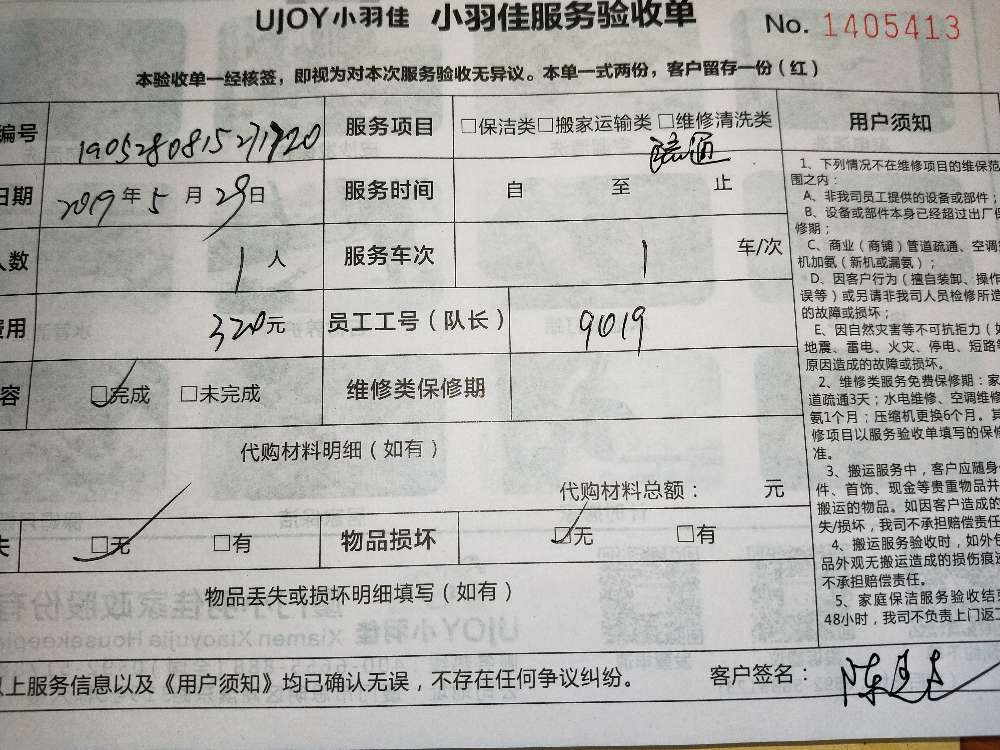 UJOY小羽佳 小羽佳服务验收单 No. 1405413
本验收单一经核签，即视为对本次服务验收无异议。本单一式两份，客户留存一份（红）
编号 190528081521720 服务项目 □保洁类□搬家运输类□维修清洗类
疏通
日期 2019年5月29日 服务时间 自 至 止
人数 1人 服务车次 1 车/次
费用 320元 员工工号（队长） 9019
容 □完成 □未完成 维修类保修期
代购材料明细（如有）
代购材料总额： 元
失 □无 □有 物品损坏 □无 □有
物品丢失或损坏明细填写（如有）
以上服务信息以及《用户须知》均已确认无误，不存在任何争议纠纷。 客户签名：
用户须知
1、下列情况不在维修项目的维保范
围之内：
A、非我司员工提供的设备或部件；
B、设备或部件本身已经超过出厂保
修期；
C、商业（商铺）管道疏通、空调
机加氨（新机或漏氨）；
D、因客户行为（擅自装卸、操作
误等）或另请非我司人员检修所造
的故障或损坏；
E、因自然灾害等不可抗拒力（如
地震、雷电、火灾、停电、短路等
原因造成的故障或损坏。
2、维修类服务免费保修期：家
道疏通3天；水电维修、空调维修
氨1个月；压缩机更换6个月。其
修项目以服务验收单填写的保修
准。
3、搬运服务中，客户应随身
件、首饰、现金等贵重物品并
搬运的物品。如因客户造成的
失/损坏，我司不承担赔偿责任
4、搬运服务验收时，如外包
品外观无搬运造成的损伤痕迹
不承担赔偿责任。
5、家庭保洁服务验收结束
48小时，我司不负责上门返工